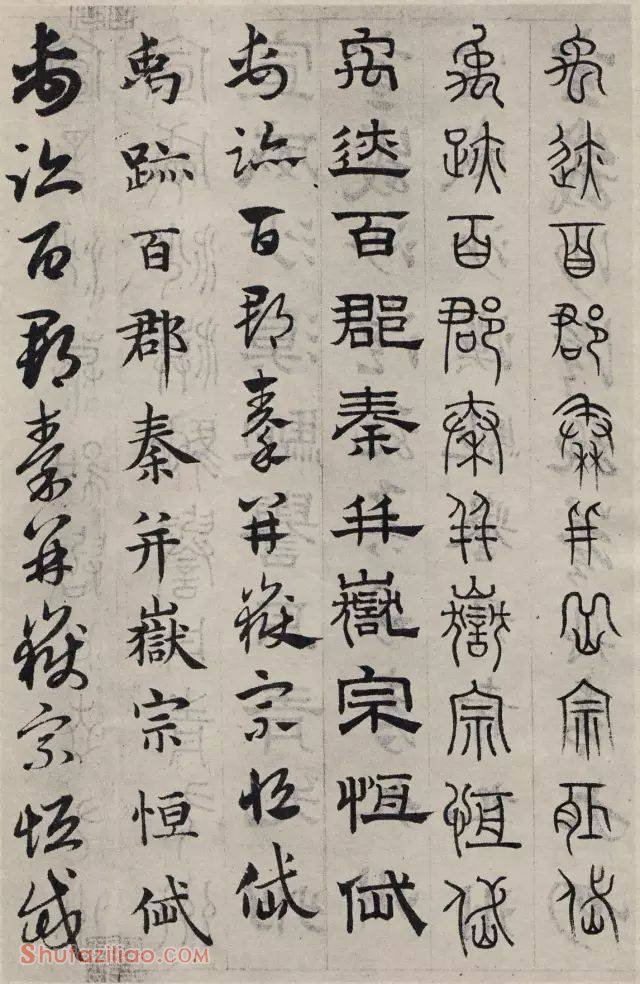 禹迹百郡秦并岳宗恒岱
禹跡百郡秦并嶽宗恒岱
禹迹百郡秦并嶽宗恒岱
禹跡百郡秦并嶽宗恒岱
禹跡百郡秦并嶽宗恒岱
禹跡百郡秦并嶽宗恒岱
Shufaziliao.com